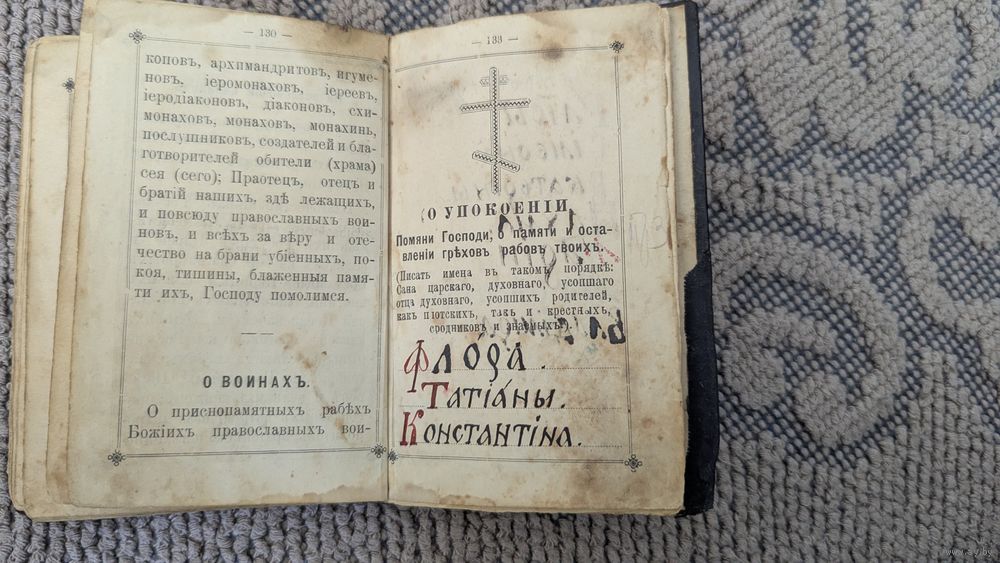 — 130 —
коповъ, архимандритовъ, игуме-
новъ, іеромонаховъ, іереевъ,
іеродіаконовъ, діаконовъ, схи-
монаховъ, монаховъ, монахинь,
послушниковъ, создателей и бла-
готворителей обители (храма)
сея (сего); Праотецъ, отецъ и
братій нашихъ, здѣ лежащихъ,
и повсюду православныхъ вои-
новъ, и всѣхъ за вѣру и оте-
чество на брани убіенныхъ, по-
коя, тишины, блаженныя памя-
ти ихъ, Господу помолимся.
О ВОИНАХЪ.
О приснопамятныхъ рабѣхъ
Божіихъ православныхъ вои-
— 133 —
О УПОКОЕНІИ
Помяни Господи, о памяти и оста-
вленіи грѣховъ рабовъ твоихъ.
(Писать имена въ такомъ порядкѣ:
Сана царскаго, духовнаго, усопшаго
отца духовнаго, усопшихъ родителей,
какъ плотскихъ, такъ и крестныхъ,
сродниковъ и знаемыхъ).
Флора.
Татіáны.
Константіна.
www.ay.by